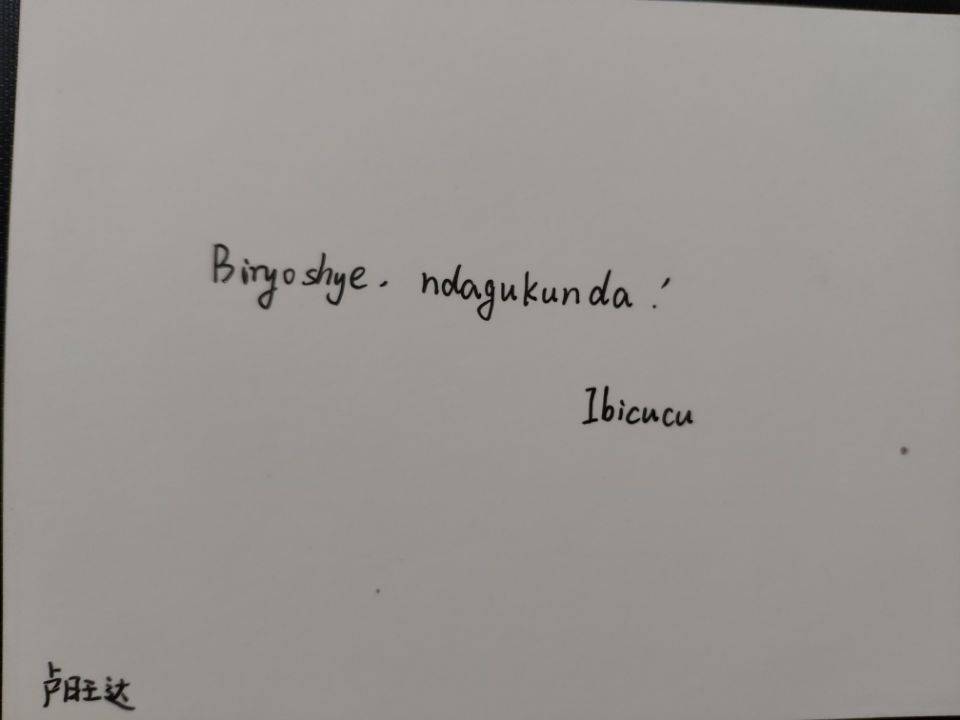 Biryoshye. ndagukunda!
Ibicucu
卢旺达